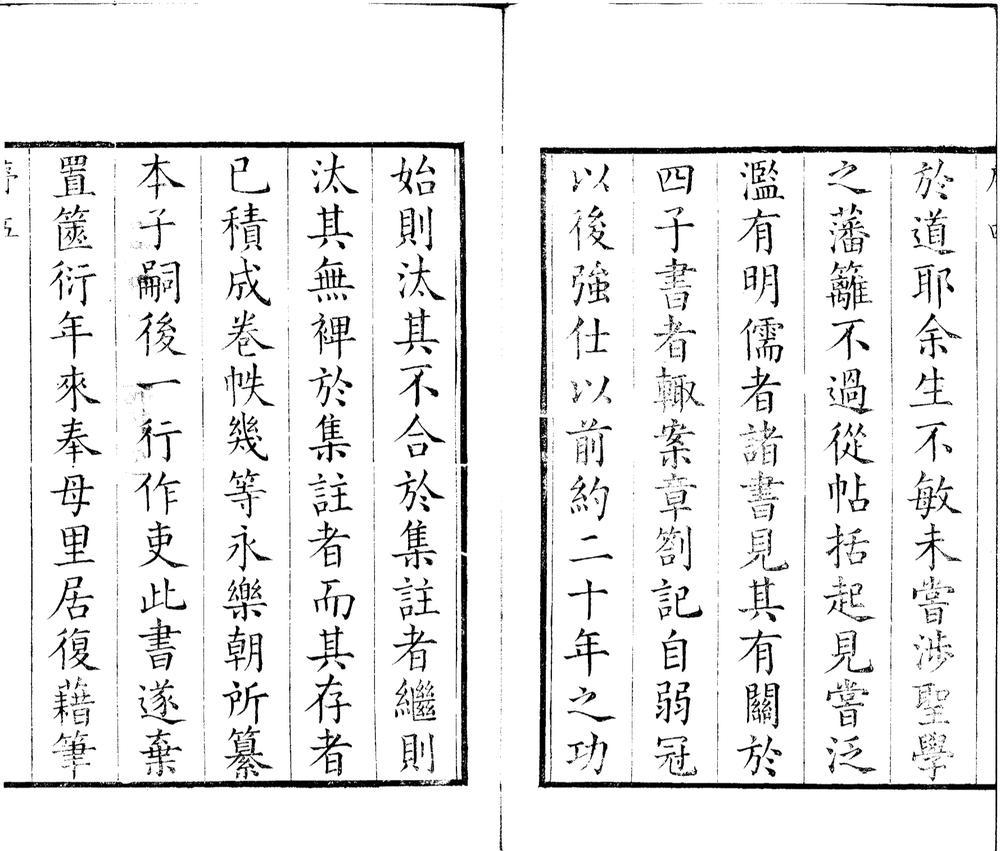 於道耶余生不敏未嘗涉聖學
之藩籬不過從帖括起見嘗泛
濫有明儒者諸書見其有關於
四子書者輒案章劄記自弱冠
以後強仕以前約二十年之功
始則汰其不合於集註者繼則
汰其無裨於集註者而其存者
已積成卷帙幾等永樂朝所纂
本子嗣後一行作吏此書遂棄
置篋衍年來奉母里居復藉筆
五